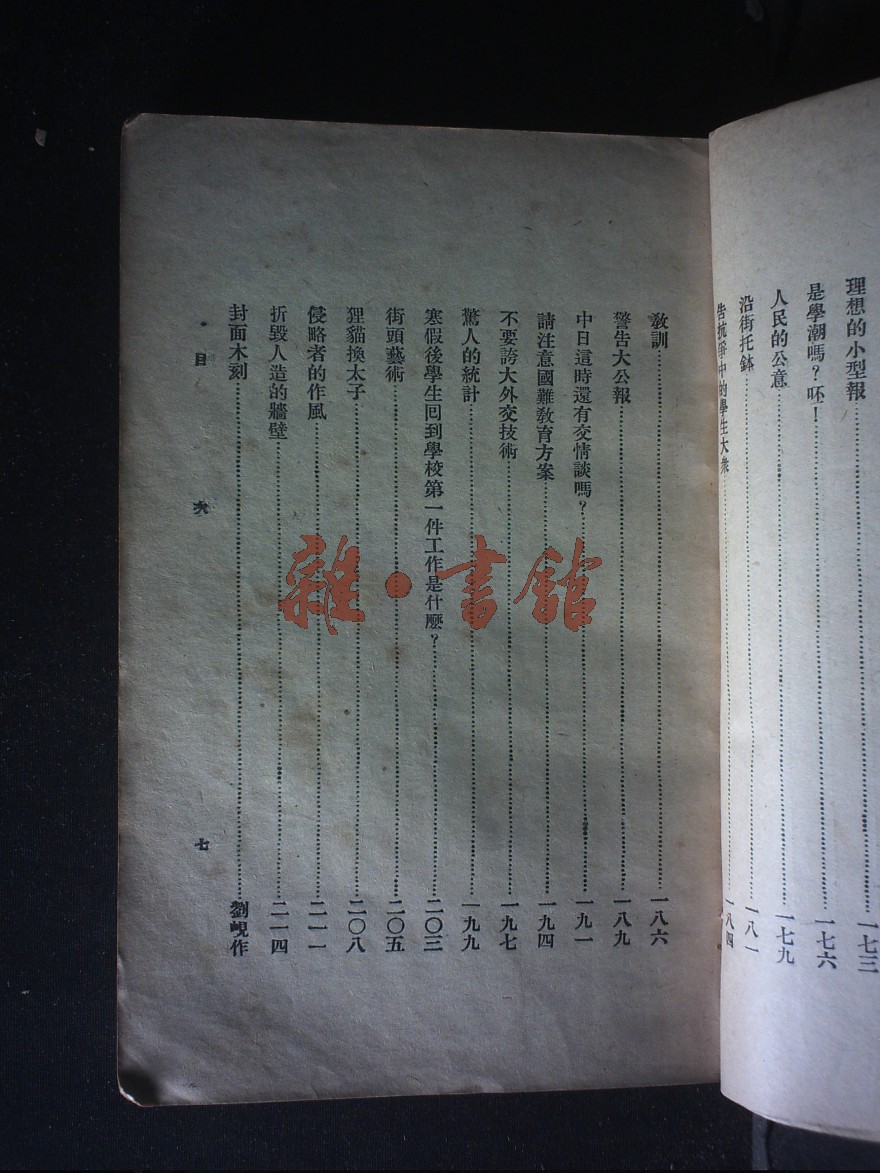 理想的小型報……一七三
是學潮嗎？呸！……一七六
人民的公意……一七九
沿街托鉢……一八一
告抗爭中的學生大衆……一八四
教訓……一八六
警告大公報……一八九
中日這時還有交情談嗎？……一九一
請注意國難教育方案……一九四
不要誇大外交技術……一九七
驚人的統計……一九九
寒假後學生回到學校第一件工作是什麼？……二〇三
街頭藝術……二〇五
狸貓換太子……二〇八
侵略者的作風……二一一
折毀人造的牆壁……二一四
封面木刻……劉峴作
目 次 七
雜·書館